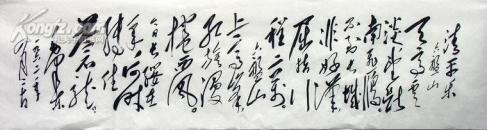 清平乐
六盘山
天高云
淡望断
南飞雁
不到长城
非好汉
屈指行
程二万
六盘山
上高峰
红旗漫
卷西风
今日长缨在
手何时
缚住
苍龙
毛泽东